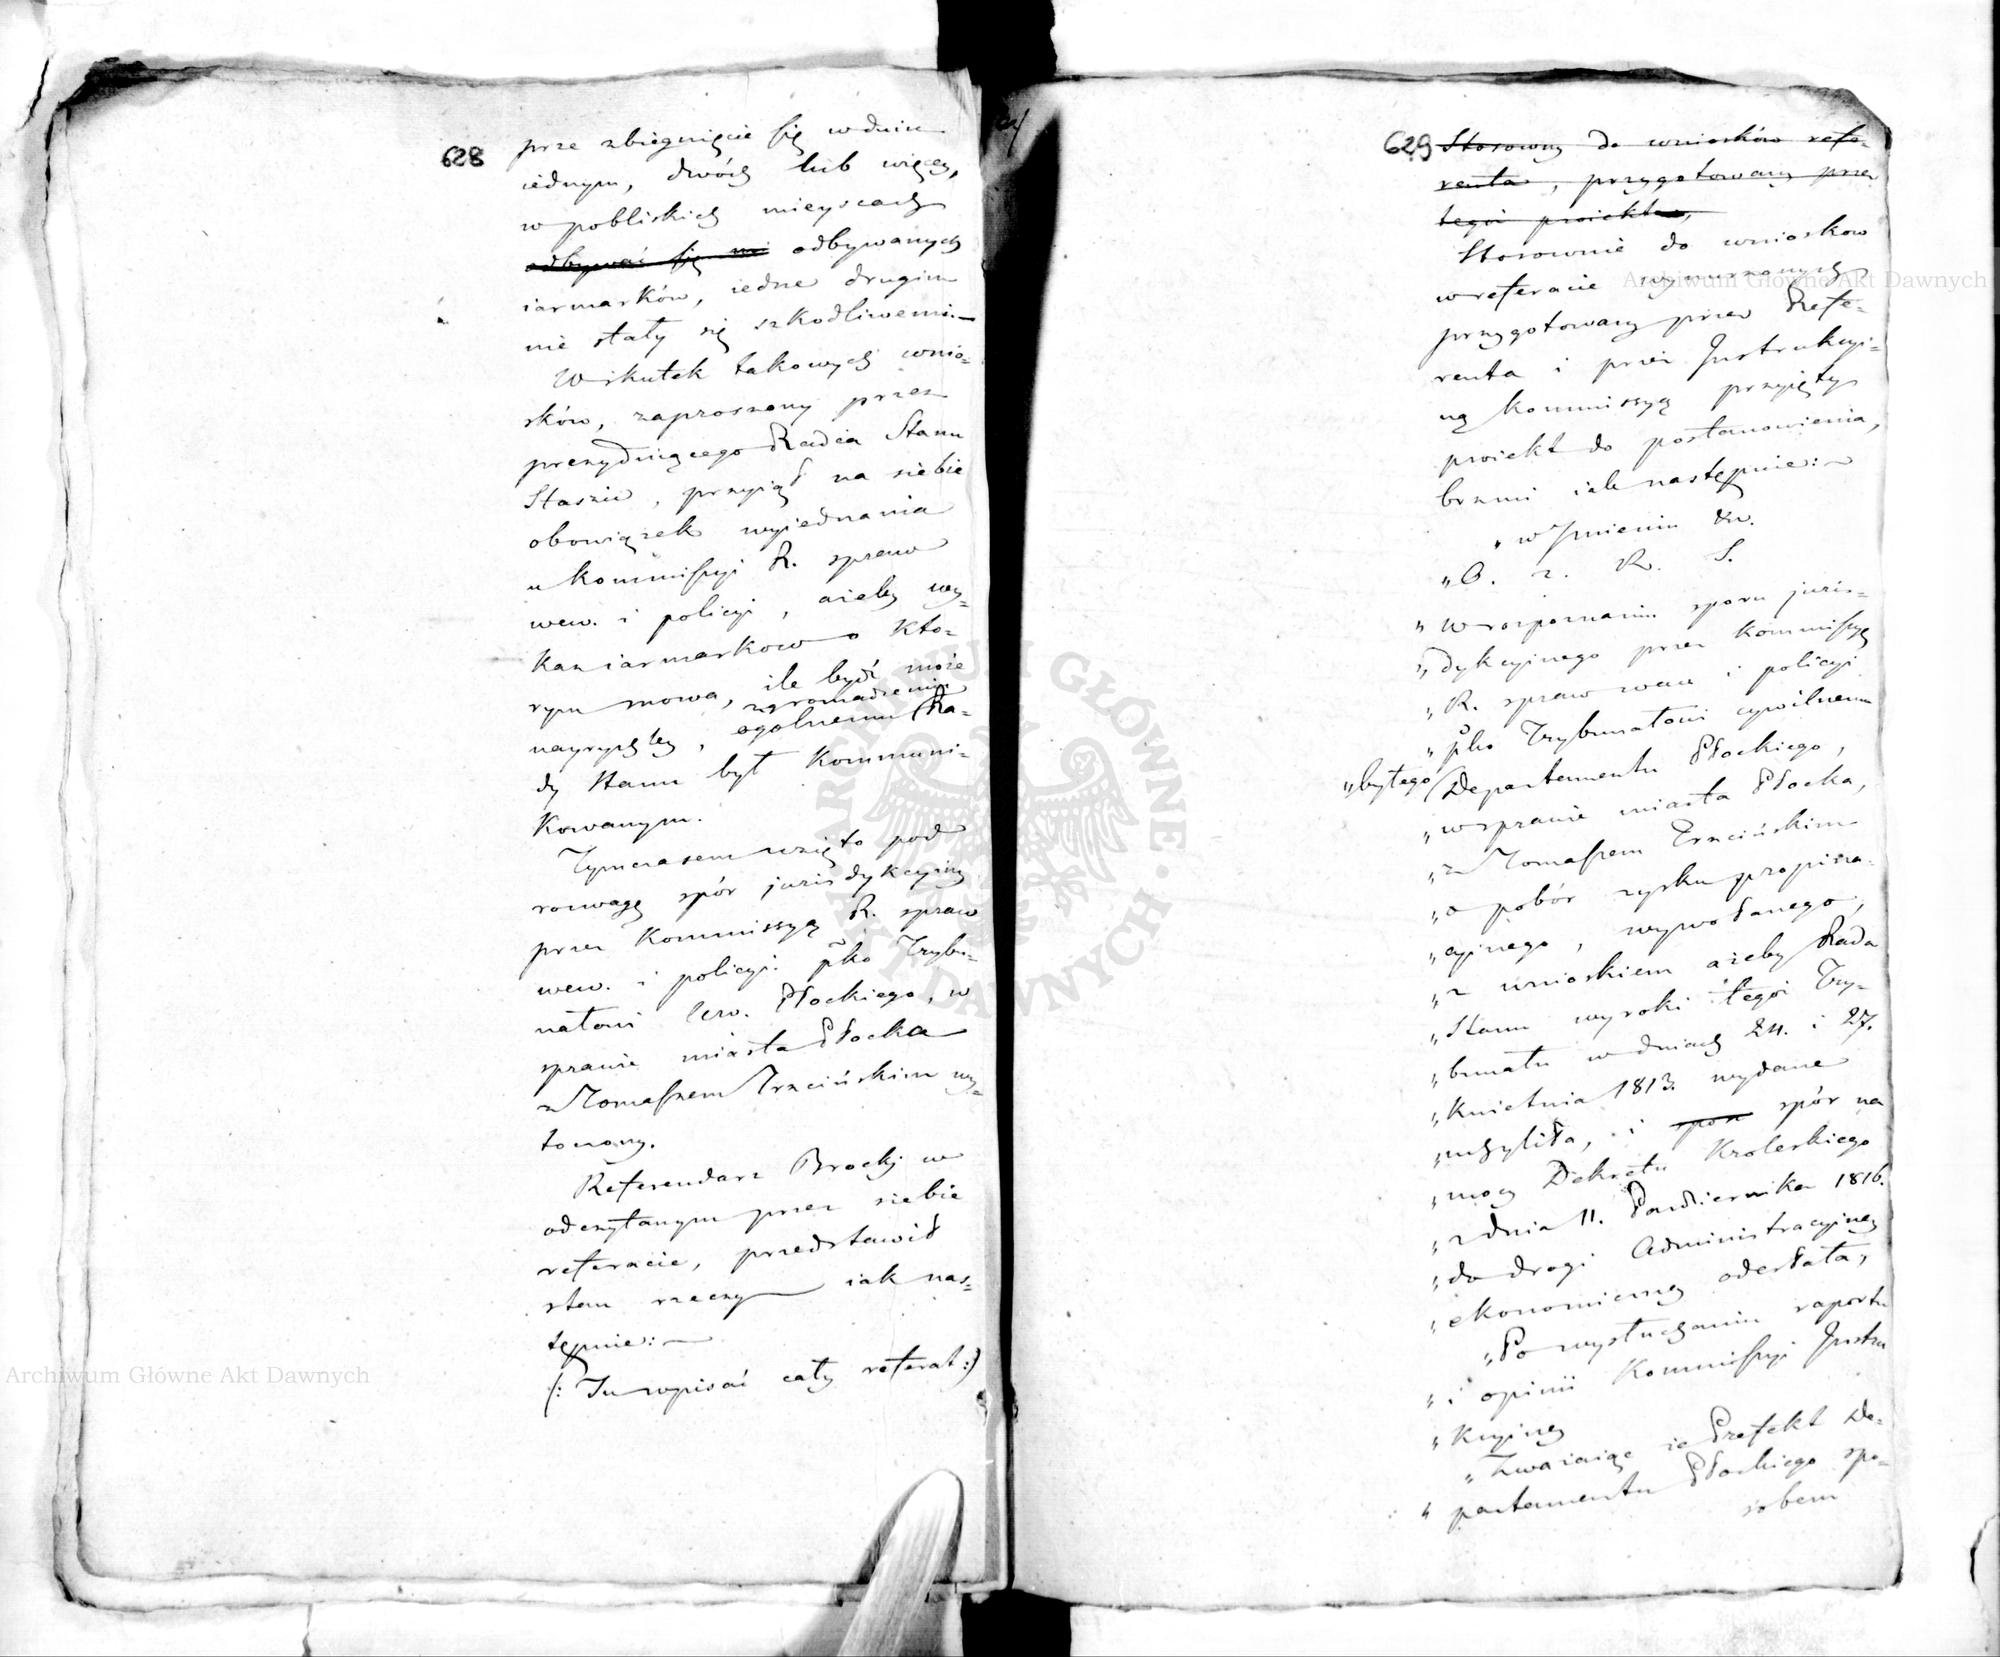 628
prze zbiegnięcie się w dniu
iednym, dwóch lub więcey,
w pobliskich mieyscach
odbywać się odbywanych
iarmarków, iedne drugim
nie stały się szkodliwemi.—
W skutek takowych wnio=
sków, zaproszony przez
prezyduiącego Radca Stanu
Staszic, przyiął na siebie
obowiązek wyiednania
u Kommissyi R. spraw
wew. i policyi, ażeby wy=
kaz iarmarków o kto=
rym mowa, ile bydź może
nayrychley, zgromadzeniu
ogolnemu Ra=
dy Stanu był kommuni=
kowanym.
Tymczasem wzięto pod
rozwagę spór jurisdykcyiny
przez Kommissyą R. spraw
wew. i policyi pko Trybu=
nałowi Płockiego, w
sprawie miasta Płocka
z Tomaszem Trzcińskim wy=
toczony.
Referendarz Brocki w
odczytanym przez siebie
referacie, przedstawił
stan rzeczy iak nas=
tępnie: —
(: Tu wpisać cały referat :)
629
Stosowny do wniosków refe=
renta, przygotowany przez
tegoż proiekt
Stosownie do wniosków
w referacie wynurzonych
przygotowany przez Refe=
renta i przez Instrukcyi=
ną Kommissyą przyięty
proiekt do postanowienia,
brzmi iak następuie: —
„ w Imieniu &c.
„ R. S.
„ W rozpoznaniu sporu juris=
„ dykcyinego przez Kommissyą
„ R. spraw wew. i policyi
„ pko Trybunałowi cywilnemu
„ byłego Departamentu Płockiego,
„ w sprawie miasta Płocka,
„ z Tomaszem Trzcińskim
„ o pobór zysku propina=
„ cyinego, wywołanego,
„ z wnioskiem ażeby Rada
„ Stanu wyroki tegoż Try=
„ bunału w dniach 24. i 27.
„ Kwietnia 1813. wydane
„ uchyliła, i spor spór na
„ mocy Dekretu Krolewskiego
„ z dnia 11. Pazdziernika 1816.
„ do drogi Administracyiney
„ ekonomiczney odesłała,
„ Po wysłuchaniu raportu
„ i opinii Kommissyi Instru
„ kcyiney
„ Zważaiąc że Prefekt De=
„ partamentu Płockiego spo=
sobem
Archiwum Główne Akt Dawnych
Archiwum Główne Akt Dawnych
ARCHIWUM GŁÓWNE AKT DAWNYCH